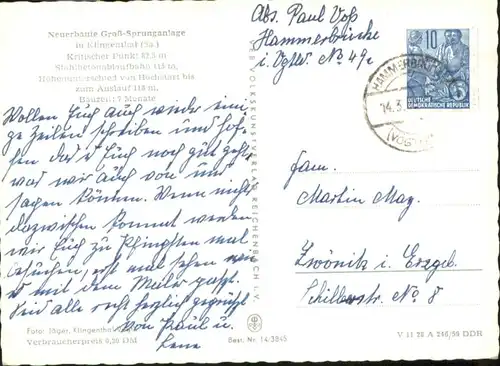 Neuerbaute Groß-Sprunganlage
in Klingenthal (Sa.)
Kritischer Punkt 82,5 m
Stahlbetonanlaufbahn 115 m,
Höhenunterschied von Hochstart bis
zum Auslauf 118 m.
Bauzeit: 7 Monate
Abs. Paul Voß
Hammerbrücke
i. Vgtl. No 49c
10
DEUTSCHE
DEMOKRATISCHE REPUBLIK
HAMMERBRÜCKE
14.3.
(VOGTL)
Wollen Euch auch wieder eini-
ge Zeilen schreiben und hof-
fen das Euch noch gut geht
was wir auch von uns
sagen können. Wenn nichts
dazwischen kommt werden
wir Euch zu Pfingsten mal
besuchen, erst mal sehen wie
es mit dem Wetter paßt.
Seid alle recht herzlich gegrüßt
von Paul u.
Lene
VEB VOLKSKUNSTVERLAG REICHENBACH I. V.
Fam.
Martin May.
Zwönitz i. Erzgb.
Schillerstr. No 8
Foto: Jäger, Klingenthal
Verbraucherpreis 0,20 DM
Best. Nr. 14/3845
V 11 28 A 246/59 DDR